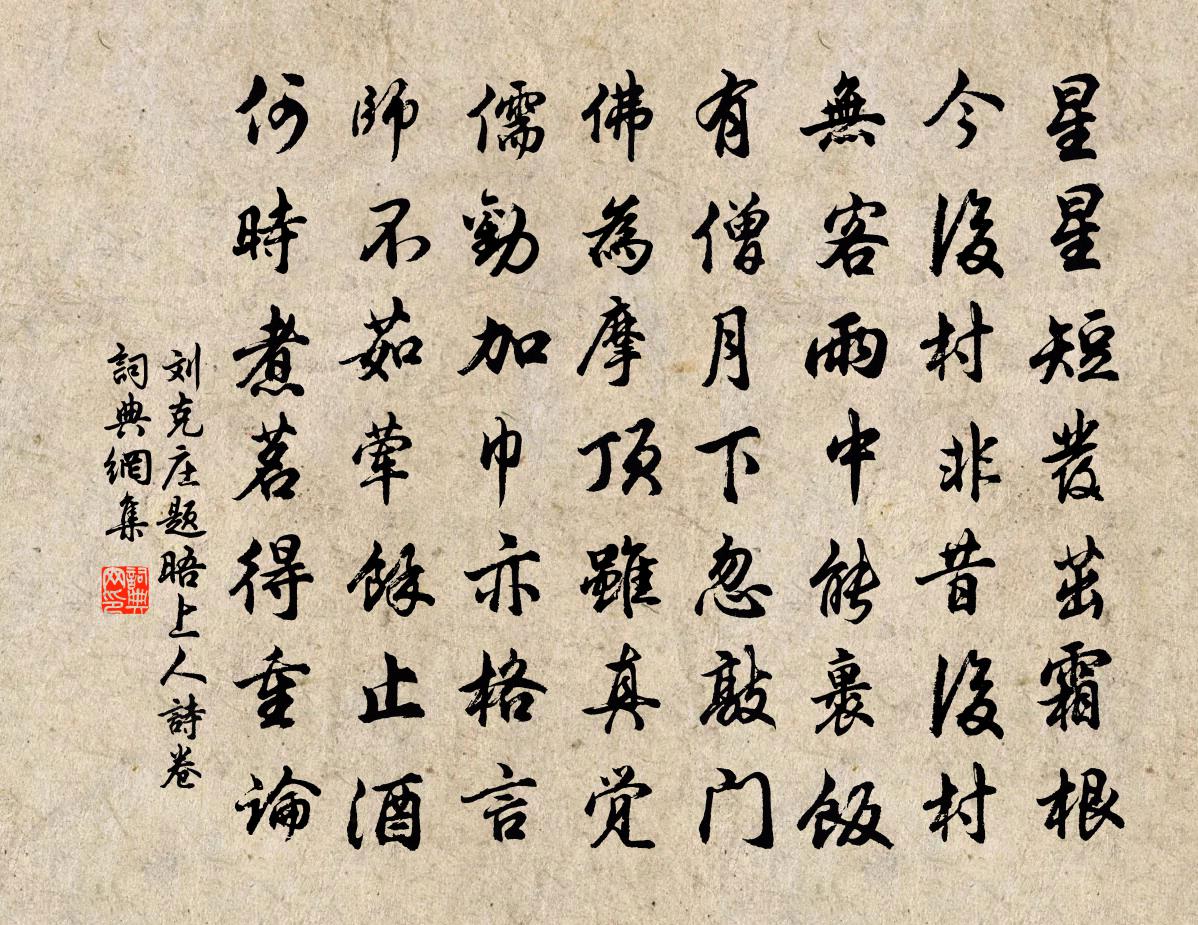 星星短发茁霜根
今後村非昔後村
無客雨中能裹飯
有僧月下忽敲门
佛為摩顶雖真覚
儒勸加巾亦格言
師不茹荤餘止酒
何時煮茗得重論
刘克庄题晤上人詩卷
詞典網集
詞典网印